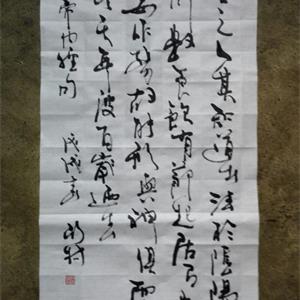 之人其知道者法於陰陽
術數食飲有節起居有
妄作勞故能形與神俱而
其天年度百歲乃去
帝內經句
戊戌